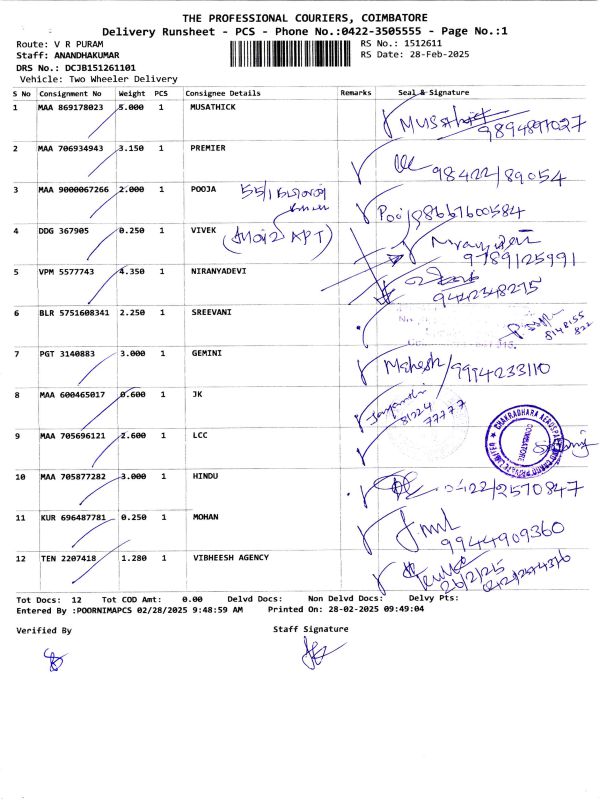 THE PROFESSIONAL COURIERS, COIMBATORE
Delivery Runsheet - PCS - Phone No.:0422-3505555 - Page No.:1
Route: V R PURAM
RS No.: 1512611
Staff: ANANDHAKUMAR
RS Date: 28-Feb-2025
DRS No.: DCJB151261101
Vehicle: Two Wheeler Delivery
S No Consignment No Weight PCS Consignee Details Remarks Seal & Signature
1 MAA 869178023 5.000 1 MUSATHICK
Musathick
9894897027
2 MAA 706934943 3.150 1 PREMIER
98422/89054
3 MAA 9000067266 2.000 1 POOJA 55/1
Pooja 8667600584
4 DDG 367905 0.250 1 VIVEK
Niranjdevi
9789125991
5 VPM 5577743 4.350 1 NIRANYADEVI
9442348275
6 BLR 5751608341 2.250 1 SREEVANI
8148155
822
7 PGT 3140883 3.000 1 GEMINI
Mahesh/9994233110
8 MAA 600465017 0.600 1 JK
81224
77777
9 MAA 705696121 2.600 1 LCC
CHAKRADHARA AEROSPACE AND CARGO PRIVATE LIMITED
COIMBATORE
10 MAA 705877282 3.000 1 HINDU
0422/2570847
11 KUR 696487781 0.250 1 MOHAN
9944909360
12 TEN 2207418 1.280 1 VIBHEESH AGENCY
26/2/25
Tot Docs: 12 Tot COD Amt: 0.00 Delvd Docs: Non Delvd Docs: Delvy Pts:
Entered By :POORNIMAPCS 02/28/2025 9:48:59 AM Printed On: 28-02-2025 09:49:04
Verified By
Staff Signature